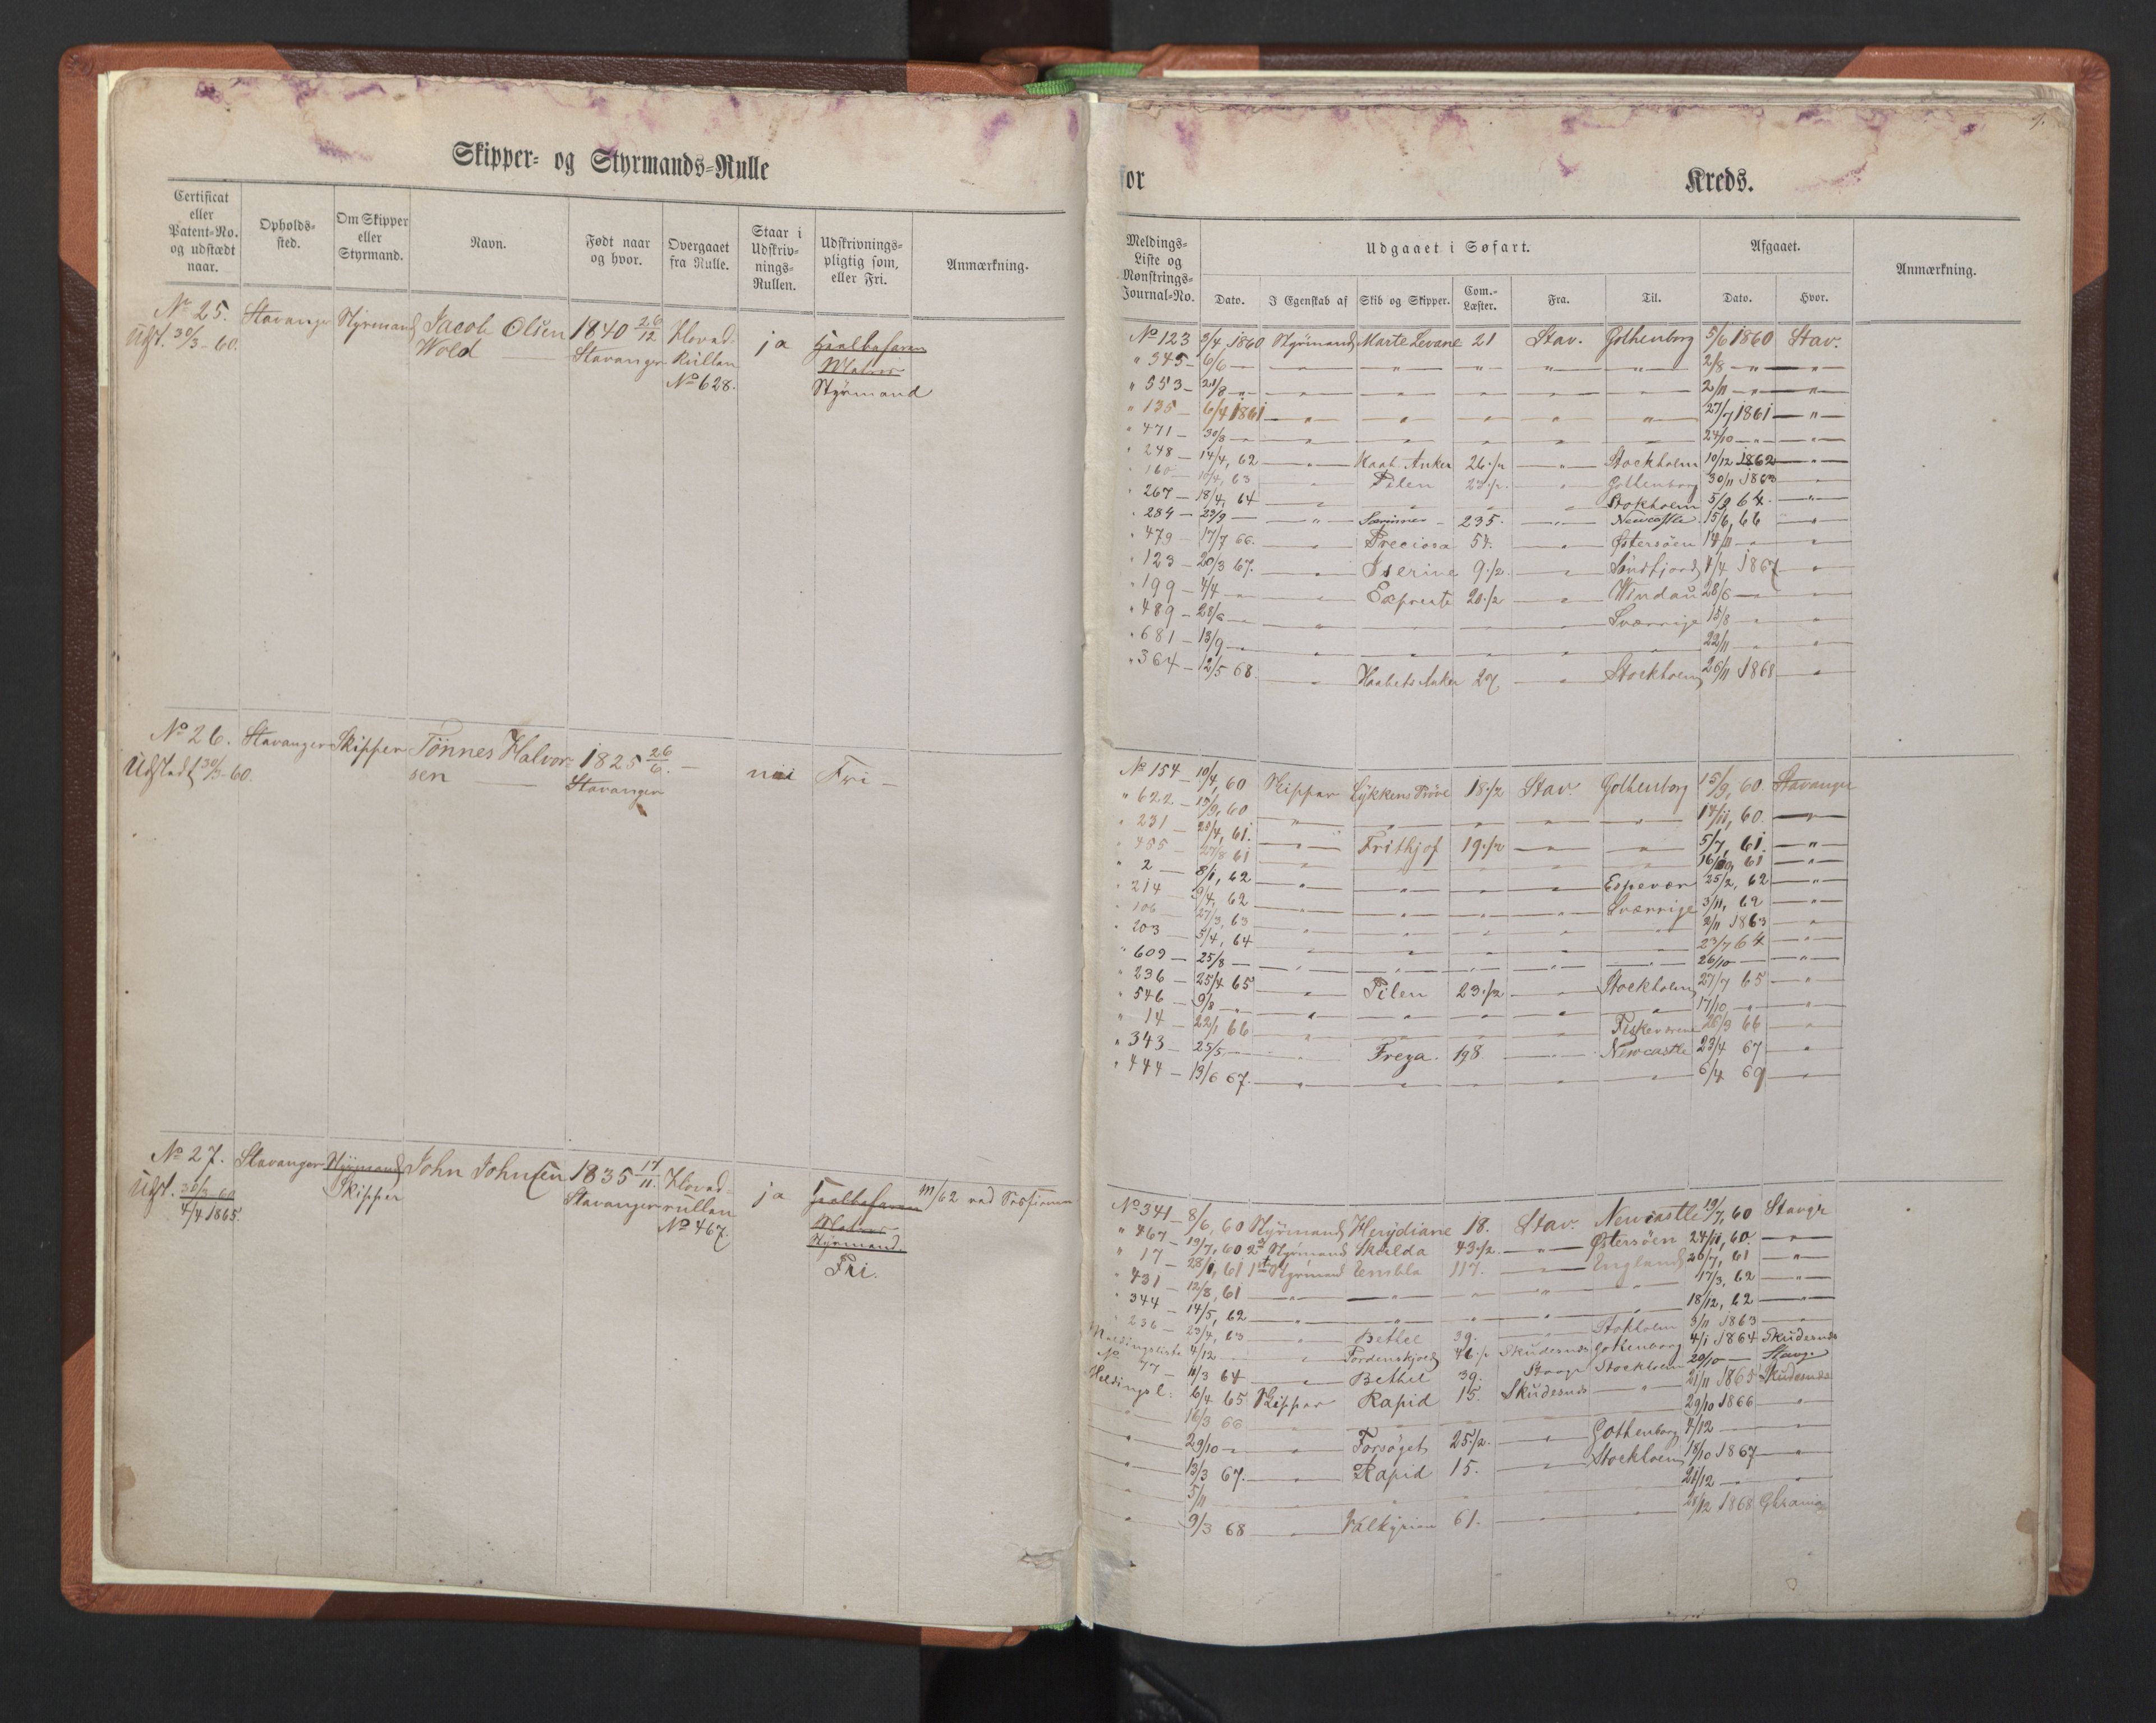 Skipper- og Styrmands-Rulle
Certificat eller Patent-No. og udstædt naar.
Opholds-sted.
Om Skipper eller Styrmand.
Navn.
Født naar og hvor.
Overgaaet fra Rulle.
Staar i Udskriv-nings-Rullen.
Udskrivnings-pligtig som, eller Fri.
Anmærkning.
No 25. Stavanger Styrmand Jacob Olsen 1840 26/12 Hoved- ja
Udst. 30/3-60. Wold Stavanger Rullen Matros
No 628. Styrmand
No 26. Stavanger Skipper Tönnes Halvor- 1825 26/6. nei Fri
Udstedt 30/3-60. sen Stavanger
No 27. Stavanger Styrmand John Johnsen 1835 17/11. Hoved- ja
Udst. 30/3-60 Skipper Stavanger rullen Matros
4/4 1865. No 467. Styrmand.
Fri.
for Kreds.
9.
Meldings-Liste og Mønstrings-Journal-No.
Udgaaet i Søfart.
Afgaaet.
Anmærkning.
Dato. I Egenskab af Skib og Skipper. Com.-Læster. Fra. Til. Dato. Hvor.
No 123 3/4 1860 Styrmand Marte Levane 21 Stav. Gothenborg 5/6 1860 Stav.
" 345 — 6/6 — " — " — " — " — " 2/8 — " — "
" 553 — 21/8 — " — 2/11 — " — "
" 135 — 6/4 1861 — " — " — " — " — " 27/7 1861 — " —
" 471 — 30/8 — " — 24/10 — " — " —
" 248 — 14/4, 62 — " — Haab. Anker 26 1/2 — " — Stockholm 10/12 1862 — " —
" 160 — 10/4, 63 " Pilen 23 1/2 " Gothenborg 30/11 1863 "
" 267 — 18/4, 64 — " — Stokholm 5/9 64. — " —
" 284 — 23/9 — " — 235. — " — Newcastle 15/6, 66 — " —
" 479 — 17/7 66. — " — Preciosa 54. — " — Østersöen 14/11 — " — " —
" 123 — 20/3 67. — " — Iserine 9 1/2. — " — Søndfjord 4/4 1867 — " —
" 199 — 4/4 — " — 20 1/2 — " — Windau 28/6 — " —
" 489 — 28/6 — " — Sverrige 15/8 — " —
" 681 — 13/9 — " — " — " — 22/11 " "
" 364 — 12/5 68. — " — Haabets Anker 29 — " — Stockholm 26/11 1868 — " —
No 154 — 10/4, 60 Skipper Lykkens Pröve 18 1/2 Stav. Gothenborg 15/9, 60. Stavanger
" 622 — 19/9, 60 — " — " — " — " — " 14/11, 60. — " —
" 231 — 20/4, 61. — " — Frithjof 19 1/2 — " — " — 5/7, 61. — " —
" 455 — 27/8 61 — " — 16/10, 61 — " —
" 2 — 8/1, 62 — " — " — " — Espevær 25/2, 62 — " —
" 214 — 9/4, 62 — " — " — " — Sverrige 3/11, 62 — " —
" 106 — 27/3, 63 — " — 2/11 1863 — " —
" 203 — 5/4, 64 — " — 23/7 64 — " —
" 609 — 25/8 — " — " — 26/10 — " —
" 236 — 25/4 65 — " — Pilen 23 1/2 — " — Stockholm 27/7 65 — " —
" 546 — 9/8 — " — " — 17/10 — " —
" 14 — 22/1 66 — " — 26/3 66 "
" 343 — 25/5 — " — Freya. 198. — " — Newcastle 23/4 67 — " —
" 444 — 13/6 67. — " — 6/4 69 — " —
No 341 — 8/6, 60 Styrmand 18. Stav. Newcastle 19/7, 60 Stavgr
" 467 — 19/7, 60 2d Styrmand 43 1/2. — " — Østersöen 24/11, 60. — " —
" 17 — 28/1, 61 1st Styrmand Embla 117. — " — England 26/7, 61 — " —
" 431 — 12/8, 61 — " — " — " — 17/3, 62 — " —
" 344 — 14/5, 62 — " — " — " — 18/12, 62 — " —
" 236 — 23/4, 63 — " — Bethel 39. — " — Stokholm 3/11 1863 — " —
Meldingsliste 4/12 — " — Tordenskjold 46 1/2 Skudesnæs Gothenborg 4/1 1864 Skudesnæs
No 77 — 11/3 64 — " — Bethel 39. Stavgr Stockholm 20/10 — Stavgr
Meldingsl. 6/4 65 Skipper Rapid 15. Skudesnæs — " — 21/11 1865 Skudesnæs
" 16/3 66 29/10 1866 — " —
" 29/10 — " — Forsöget 25 1/2. — " — Gothenborg 4/12 — " —
" 13/3 67. — " — Rapid 15. — " — Stockholm 18/10 1867 — " —
" 5/11 21/12 — " —
" 9/3 68 — " — Valkyrien 61. — " — 28/12 1868